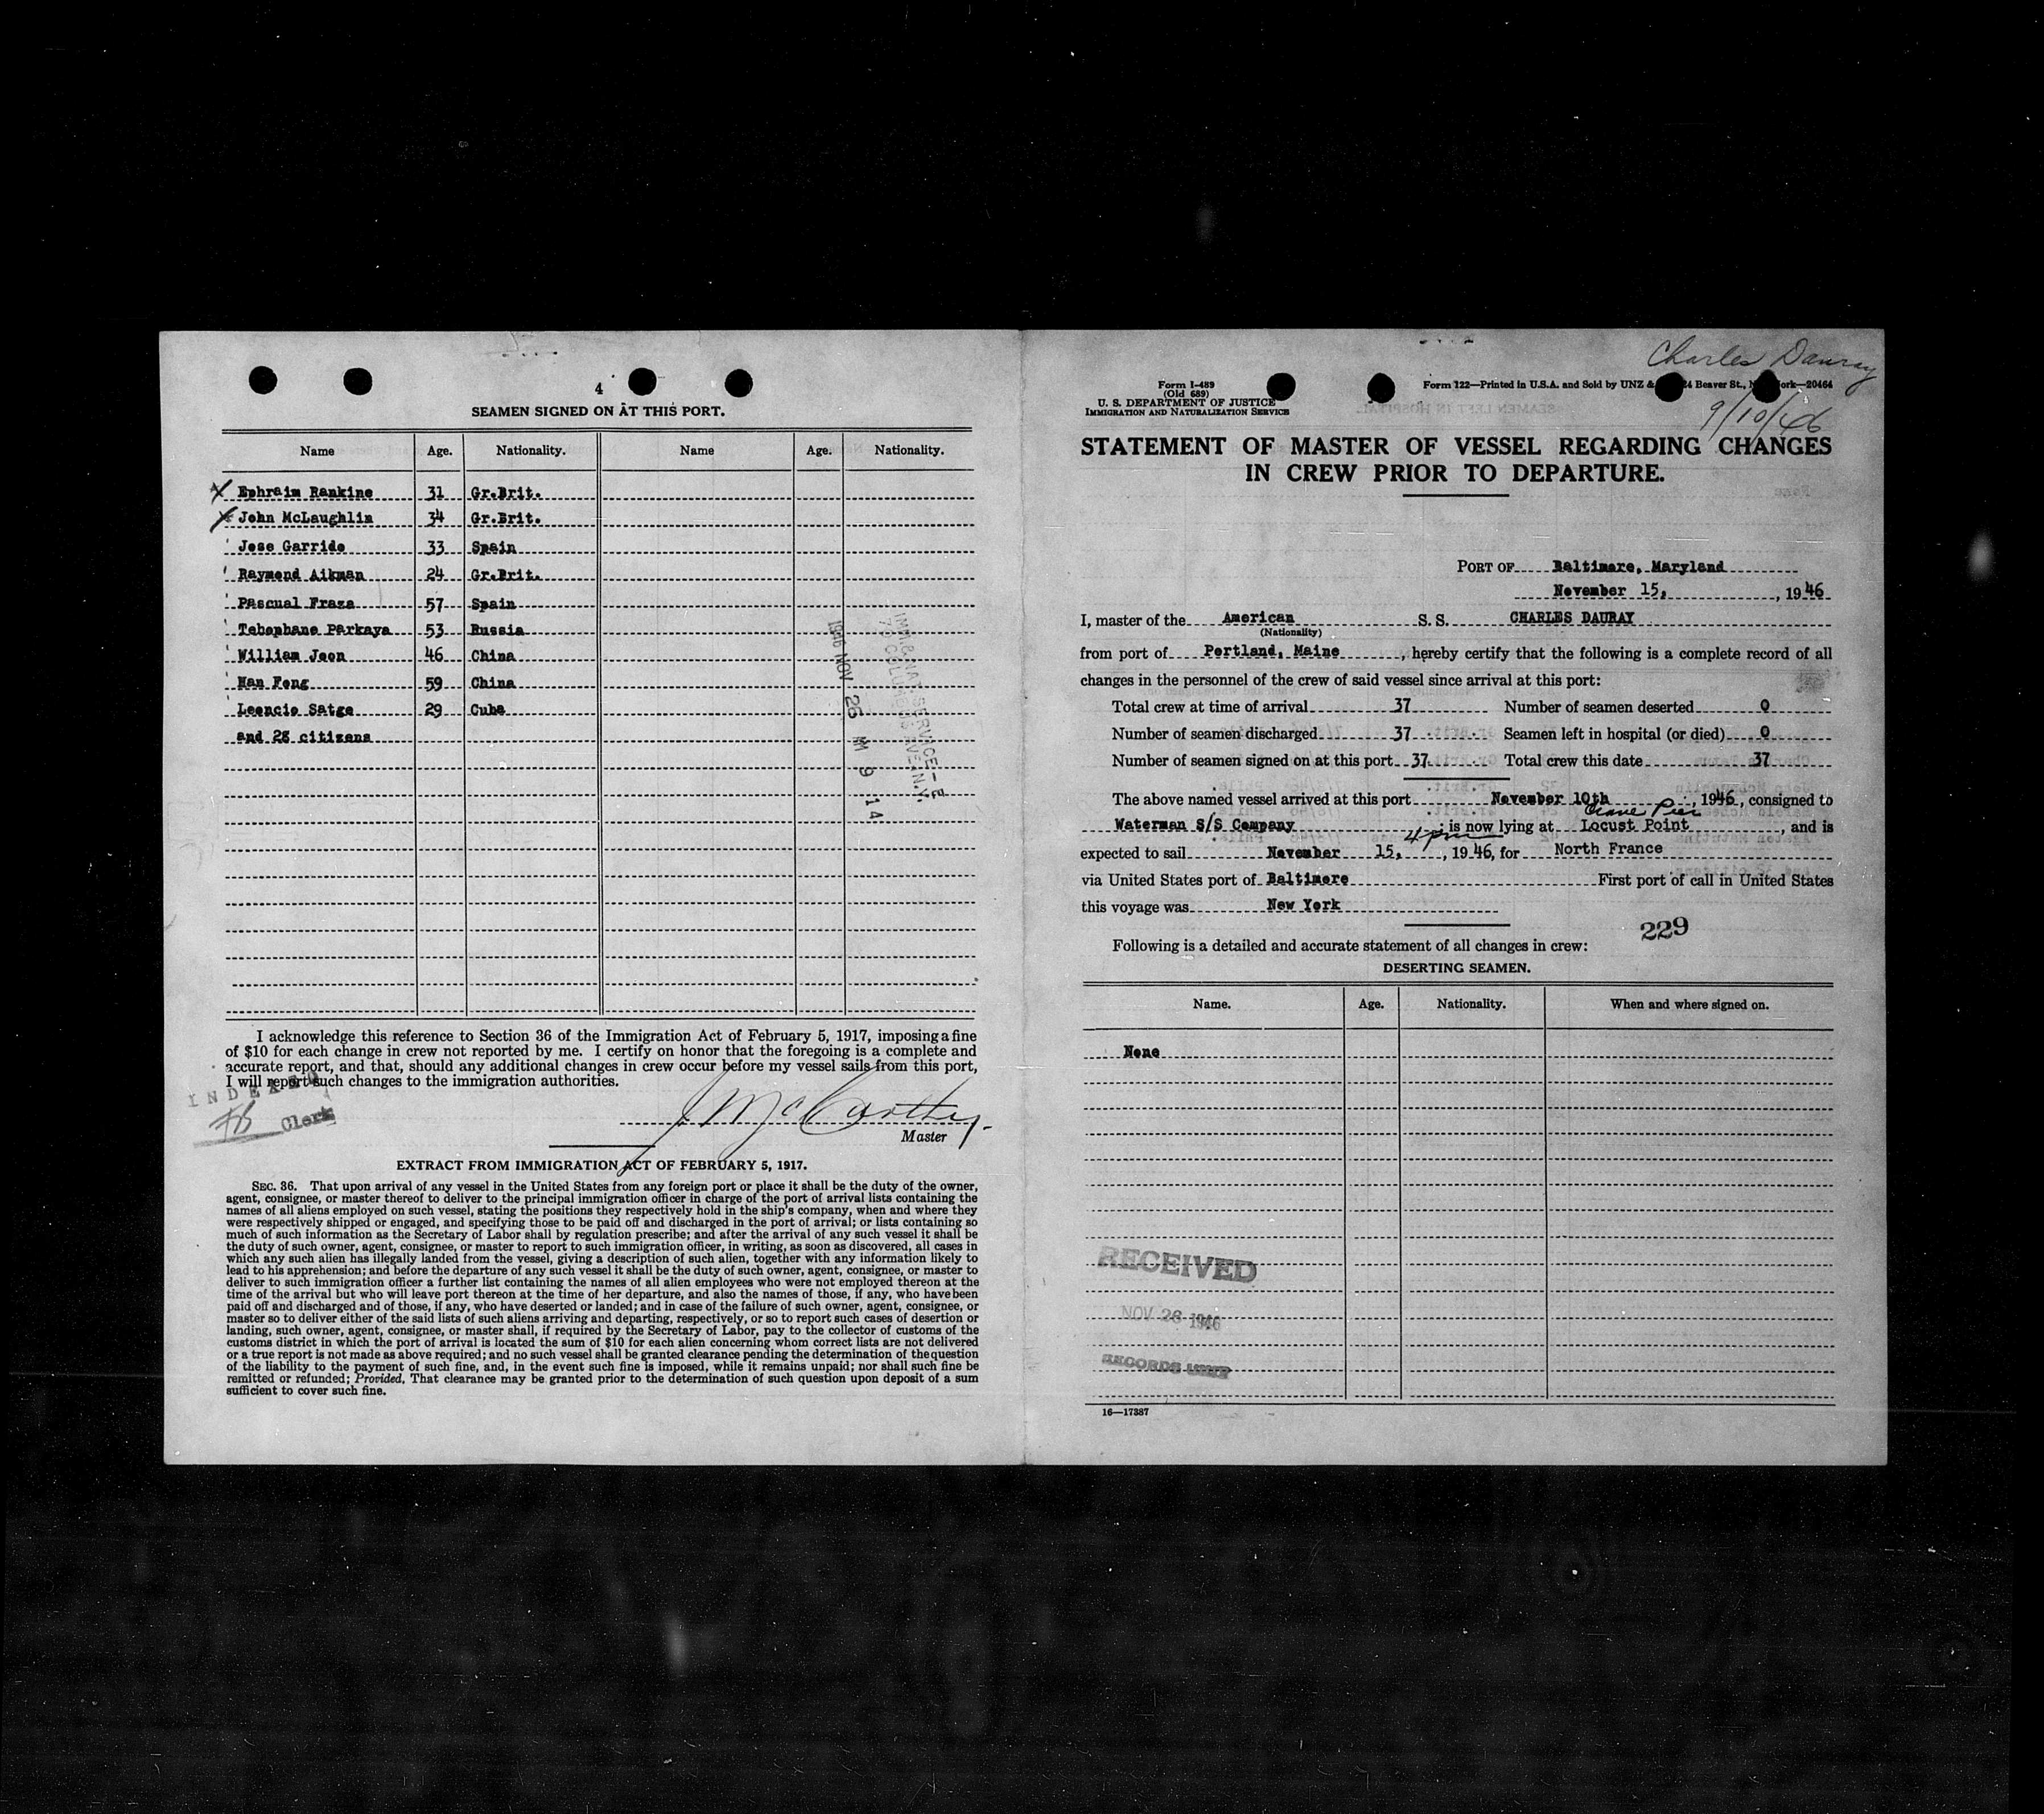 4
SEAMEN SIGNED ON AT THIS PORT.
Name Age. Nationality. Name Age. Nationality.
Ephraim Rankine 31 Gr.Brit.
John McLaughlin 34 Gr.Brit.
Jose Garrido 33 Spain
Raymond Aikman 24 Gr.Brit.
Pascual Fraza 57 Spain
Tehephane Parkaya 53 Russia
William Jeon 46 China
Han Fong 59 China
Leoncio Satge 29 Cuba
and 28 citizens
IMM & NAT SERVICE
70 COLUMBUS AVE. N.Y.
1946 NOV 26 AM 9 14
I acknowledge this reference to Section 36 of the Immigration Act of February 5, 1917, imposing a fine
of $10 for each change in crew not reported by me. I certify on honor that the foregoing is a complete and
accurate report, and that, should any additional changes in crew occur before my vessel sails from this port,
I will report such changes to the immigration authorities.
INDEXED
Clerk
J McCarthy.
Master
EXTRACT FROM IMMIGRATION ACT OF FEBRUARY 5, 1917.
SEC. 36. That upon arrival of any vessel in the United States from any foreign port or place it shall be the duty of the owner,
agent, consignee, or master thereof to deliver to the principal immigration officer in charge of the port of arrival lists containing the
names of all aliens employed on such vessel, stating the positions they respectively hold in the ship's company, when and where they
were respectively shipped or engaged, and specifying those to be paid off and discharged in the port of arrival; or lists containing so
much of such information as the Secretary of Labor shall by regulation prescribe; and after the arrival of any such vessel it shall be
the duty of such owner, agent, consignee, or master to report to such immigration officer, in writing, as soon as discovered, all cases in
which any such alien has illegally landed from the vessel, giving a description of such alien, together with any information likely to
lead to his apprehension; and before the departure of any such vessel it shall be the duty of such owner, agent, consignee, or master to
deliver to such immigration officer a further list containing the names of all alien employees who were not employed thereon at the
time of the arrival but who will leave port thereon at the time of her departure, and also the names of those, if any, who have been
paid off and discharged and of those, if any, who have deserted or landed; and in case of the failure of such owner, agent, consignee, or
master so to deliver either of the said lists of such aliens arriving and departing, respectively, or so to report such cases of desertion or
landing, such owner, agent, consignee, or master shall, if required by the Secretary of Labor, pay to the collector of customs of the
customs district in which the port of arrival is located the sum of $10 for each alien concerning whom correct lists are not delivered
or a true report is not made as above required; and no such vessel shall be granted clearance pending the determination of the question
of the liability to the payment of such fine, and, in the event such fine is imposed, while it remains unpaid; nor shall such fine be
remitted or refunded; Provided, That clearance may be granted prior to the determination of such question upon deposit of a sum
sufficient to cover such fine.
Charles Dauray
9/10/46
Form I-489
(Old 689)
U. S. DEPARTMENT OF JUSTICE
IMMIGRATION AND NATURALIZATION SERVICE
Form 122—Printed in U.S.A. and Sold by UNZ & 24 Beaver St., New York—20464
STATEMENT OF MASTER OF VESSEL REGARDING CHANGES
IN CREW PRIOR TO DEPARTURE.
PORT OF Baltimore, Maryland
November 15, , 1946
I, master of the American S. S. CHARLES DAURAY
(Nationality)
from port of Portland, Maine , hereby certify that the following is a complete record of all
changes in the personnel of the crew of said vessel since arrival at this port:
Total crew at time of arrival 37 Number of seamen deserted 0
Number of seamen discharged 37 Seamen left in hospital (or died) 0
Number of seamen signed on at this port 37 Total crew this date 37
The above named vessel arrived at this port November 10th , 1946 , consigned to
Crane Pier
Waterman S/S Company ; is now lying at Locust Point , and is
4 pm
expected to sail November 15, , 1946, for North France
via United States port of Baltimore First port of call in United States
this voyage was New York
229
Following is a detailed and accurate statement of all changes in crew:
DESERTING SEAMEN.
Name. Age. Nationality. When and where signed on.
None
RECEIVED
NOV 26 1946
RECORDS UNIT
16—17387